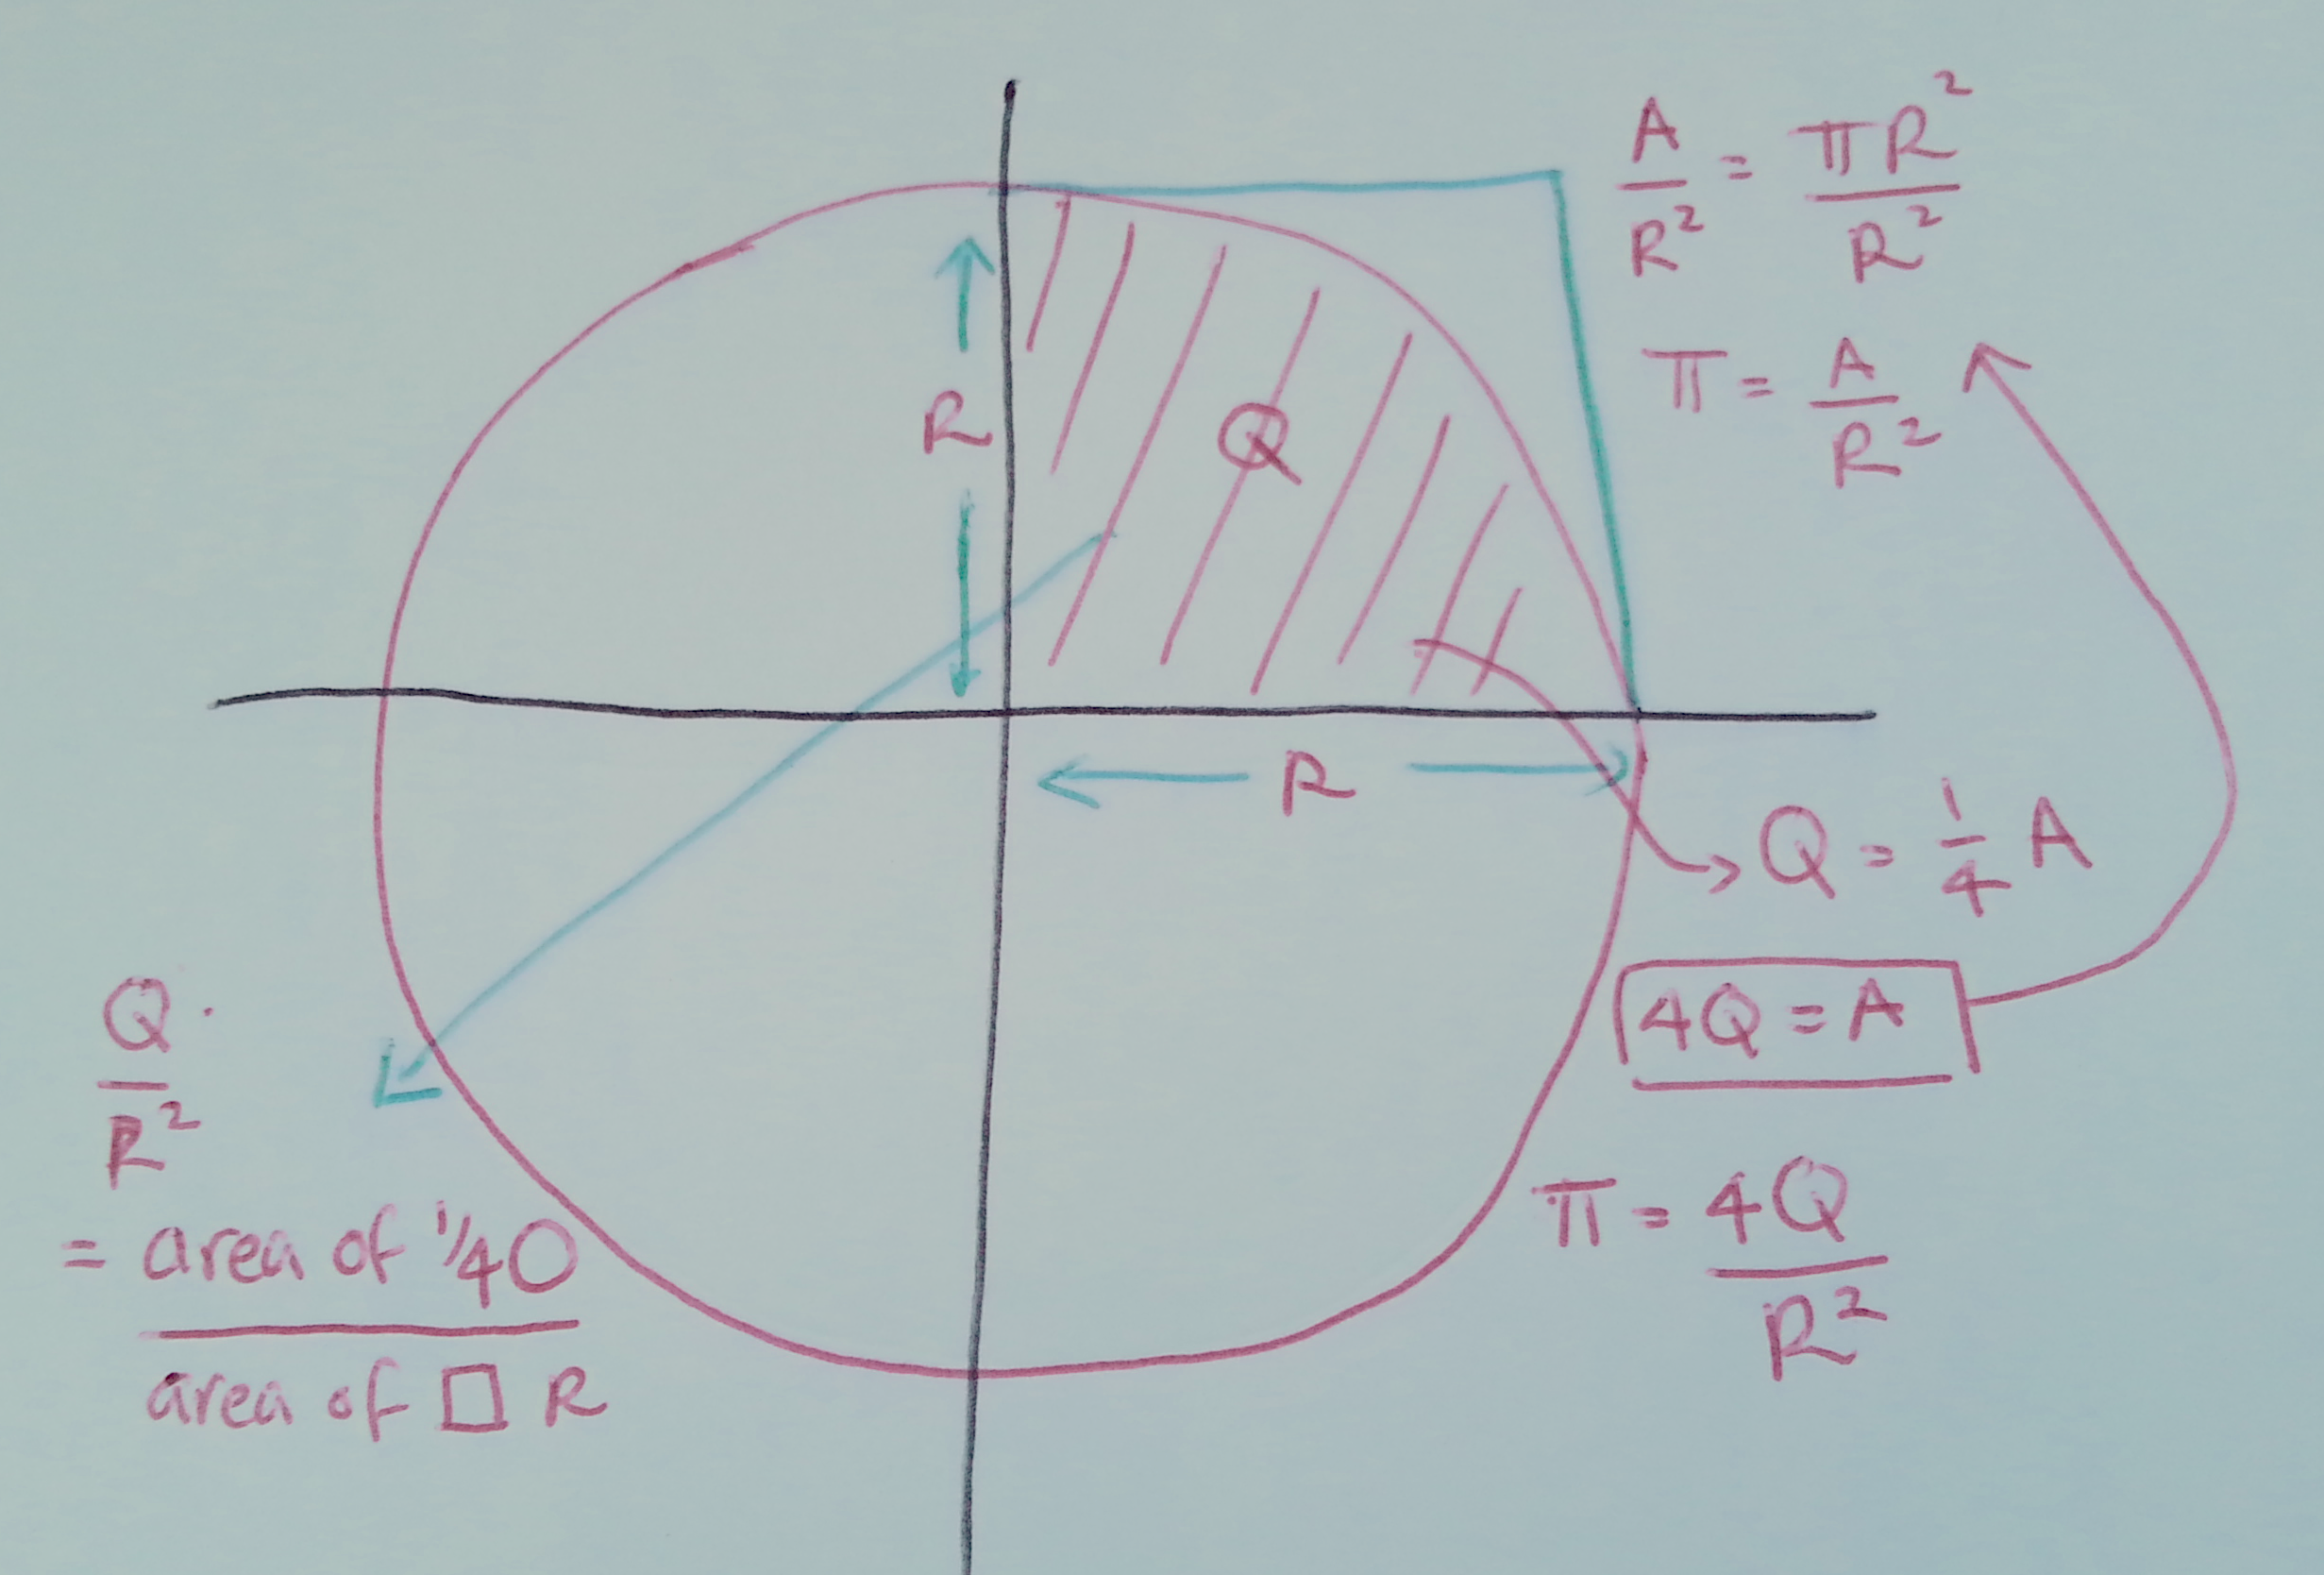 A/R² = πR²/R²
π = A/R²
R
Q
R
Q = 1/4 A
4Q = A
π = 4Q/R²
Q/R²
= area of 1/4 ○
area of □ R